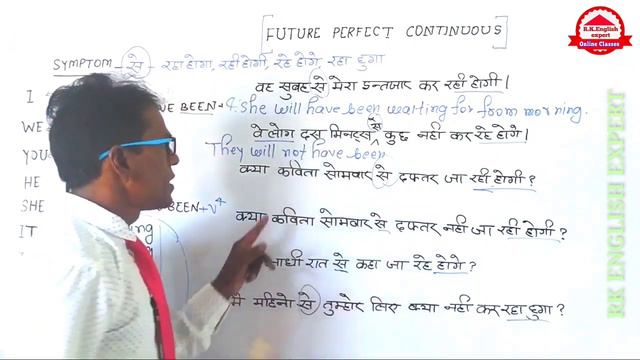 FUTURE PERFECT CONTINUOUS
R.K.English
expert
Online Classes
SYMPTOM - से - रहा होगा, रही होगी, रहे होगे, रहा हुगा
वह सुबह से मेरा इन्तजार कर रही होगी।
I
VE BEEN + 4
she will have been waiting for from morning.
WE
वे लोग दस मिनट्स से कुछ नही कर रहे होगे।
YOU
They will not have been
HE
क्या कविता सोमवार से दफ्तर जा रही होगी?
SHE
BEEN + V4
क्या कविता सोमवार से दफ्तर नही जा रही होगी?
IT
आधी रात से कहा जा रहे होगे?
महिनो से तुम्हारे लिए क्या नही कर रहा हुगा?
RK ENGLISH EXPERT